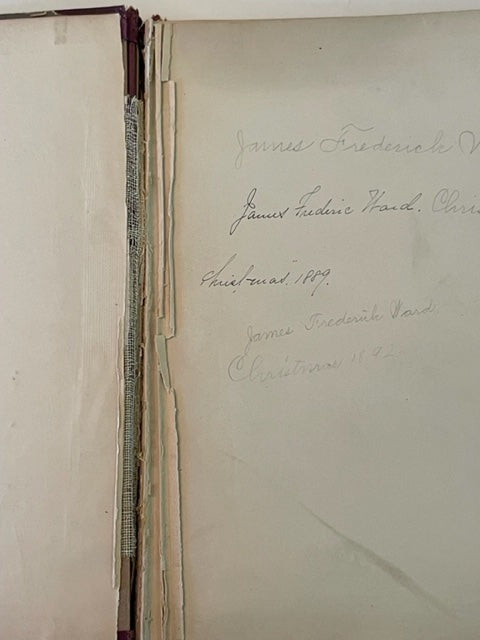 James Frederick W
James Frederic Ward. Chris
Christmas. 1889.
James Frederick Ward.
Christmas 1892